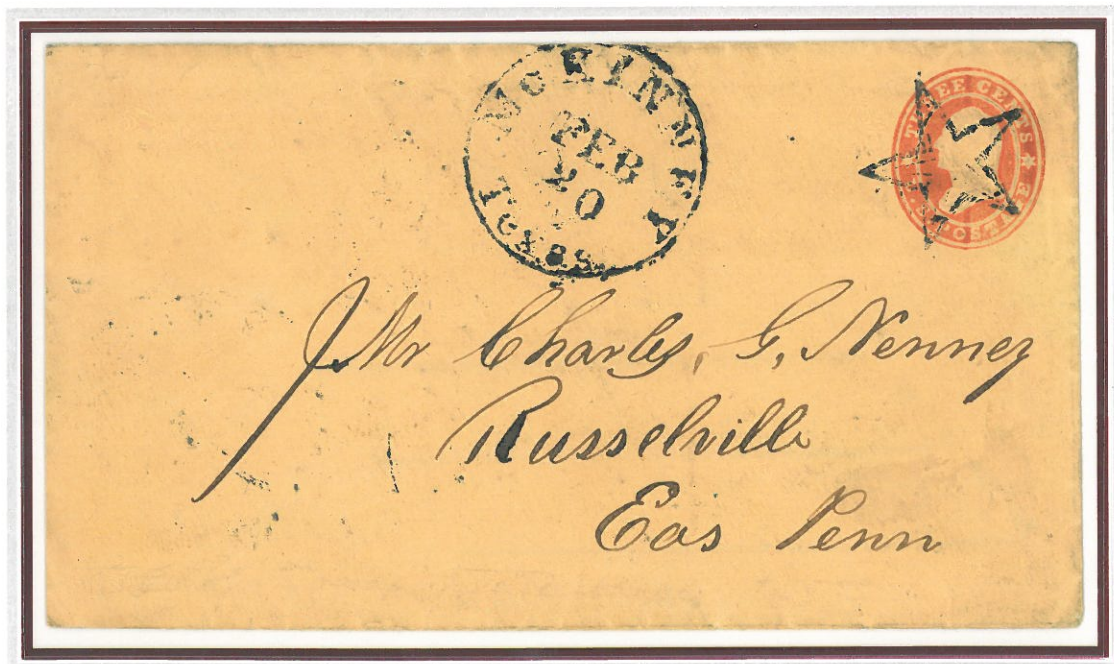 McKINNEY
FEB
20
Texas
THREE CENTS
Mr Charles, G, Nenney
Russelville
Eas Penn